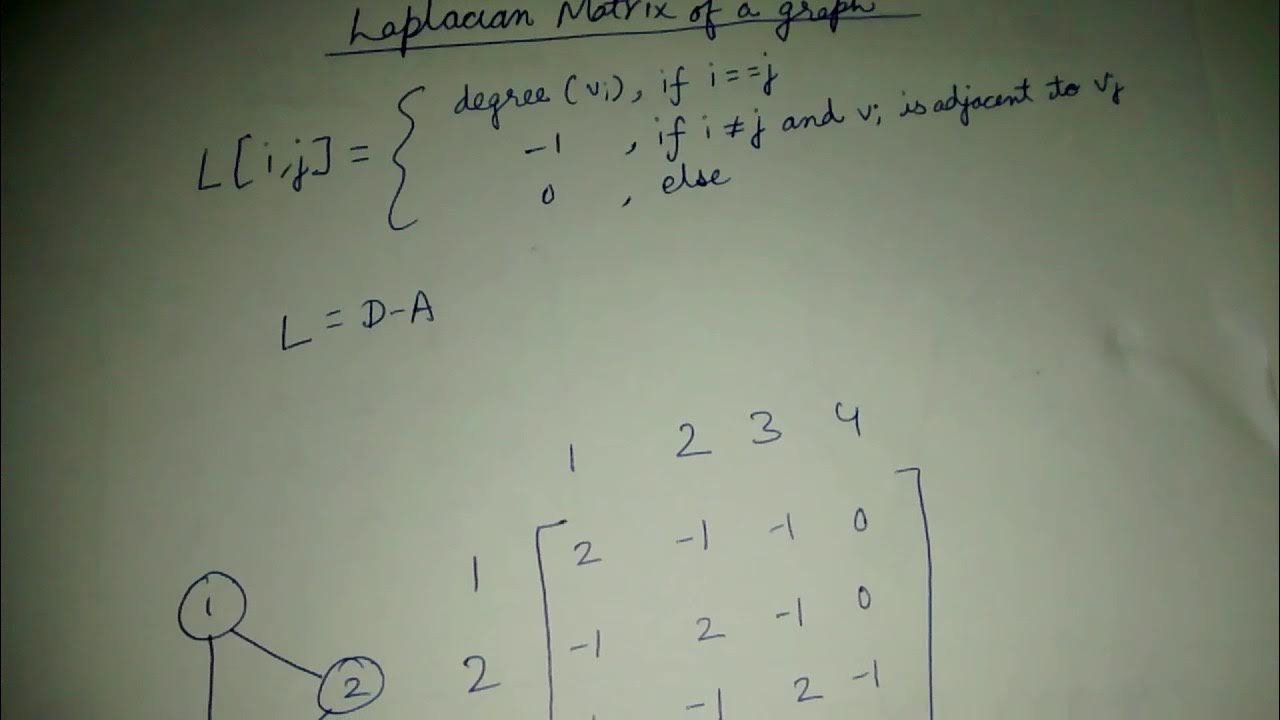 Laplacian Matrix of a graph
L[i,j] = { degree (vi), if i==j
-1 , if i ≠ j and vi is adjacent to vj
0 , else
L = D-A
1 2 3 4
1 2 -1 -1 0
2 -1 2 -1 0
-1 2 -1
1
2